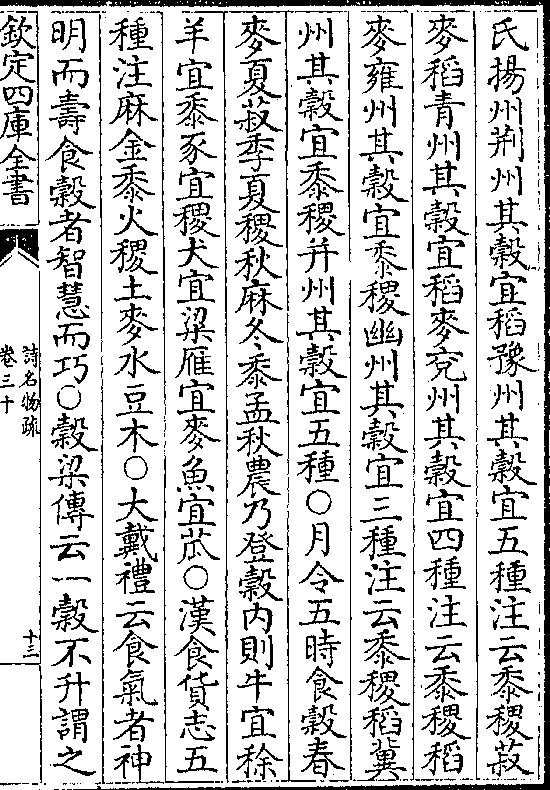 氏揚州荆州其穀宜稻豫州其穀宜五種注云黍稷菽
麥稻青州其穀宜稻麥兖州其穀宜四種注云黍稷稻
麥雍州其穀宜黍稷幽州其穀宜三種注云黍稷稻冀
州其穀宜黍稷并州其穀宜五種○月令五時食穀春
麥夏菽季夏稷秋麻冬黍孟秋農乃登穀内則牛宜稌
羊宜黍豕宜稷犬宜粱雁宜麥魚宜苽○漢食貨志五
種注麻金黍火稷土麥水豆木○大戴禮云食氣者神
明而壽食穀者智慧而巧○穀梁傳云一穀不升謂之
欽定四庫全書
詩名物疏
卷三十
十三